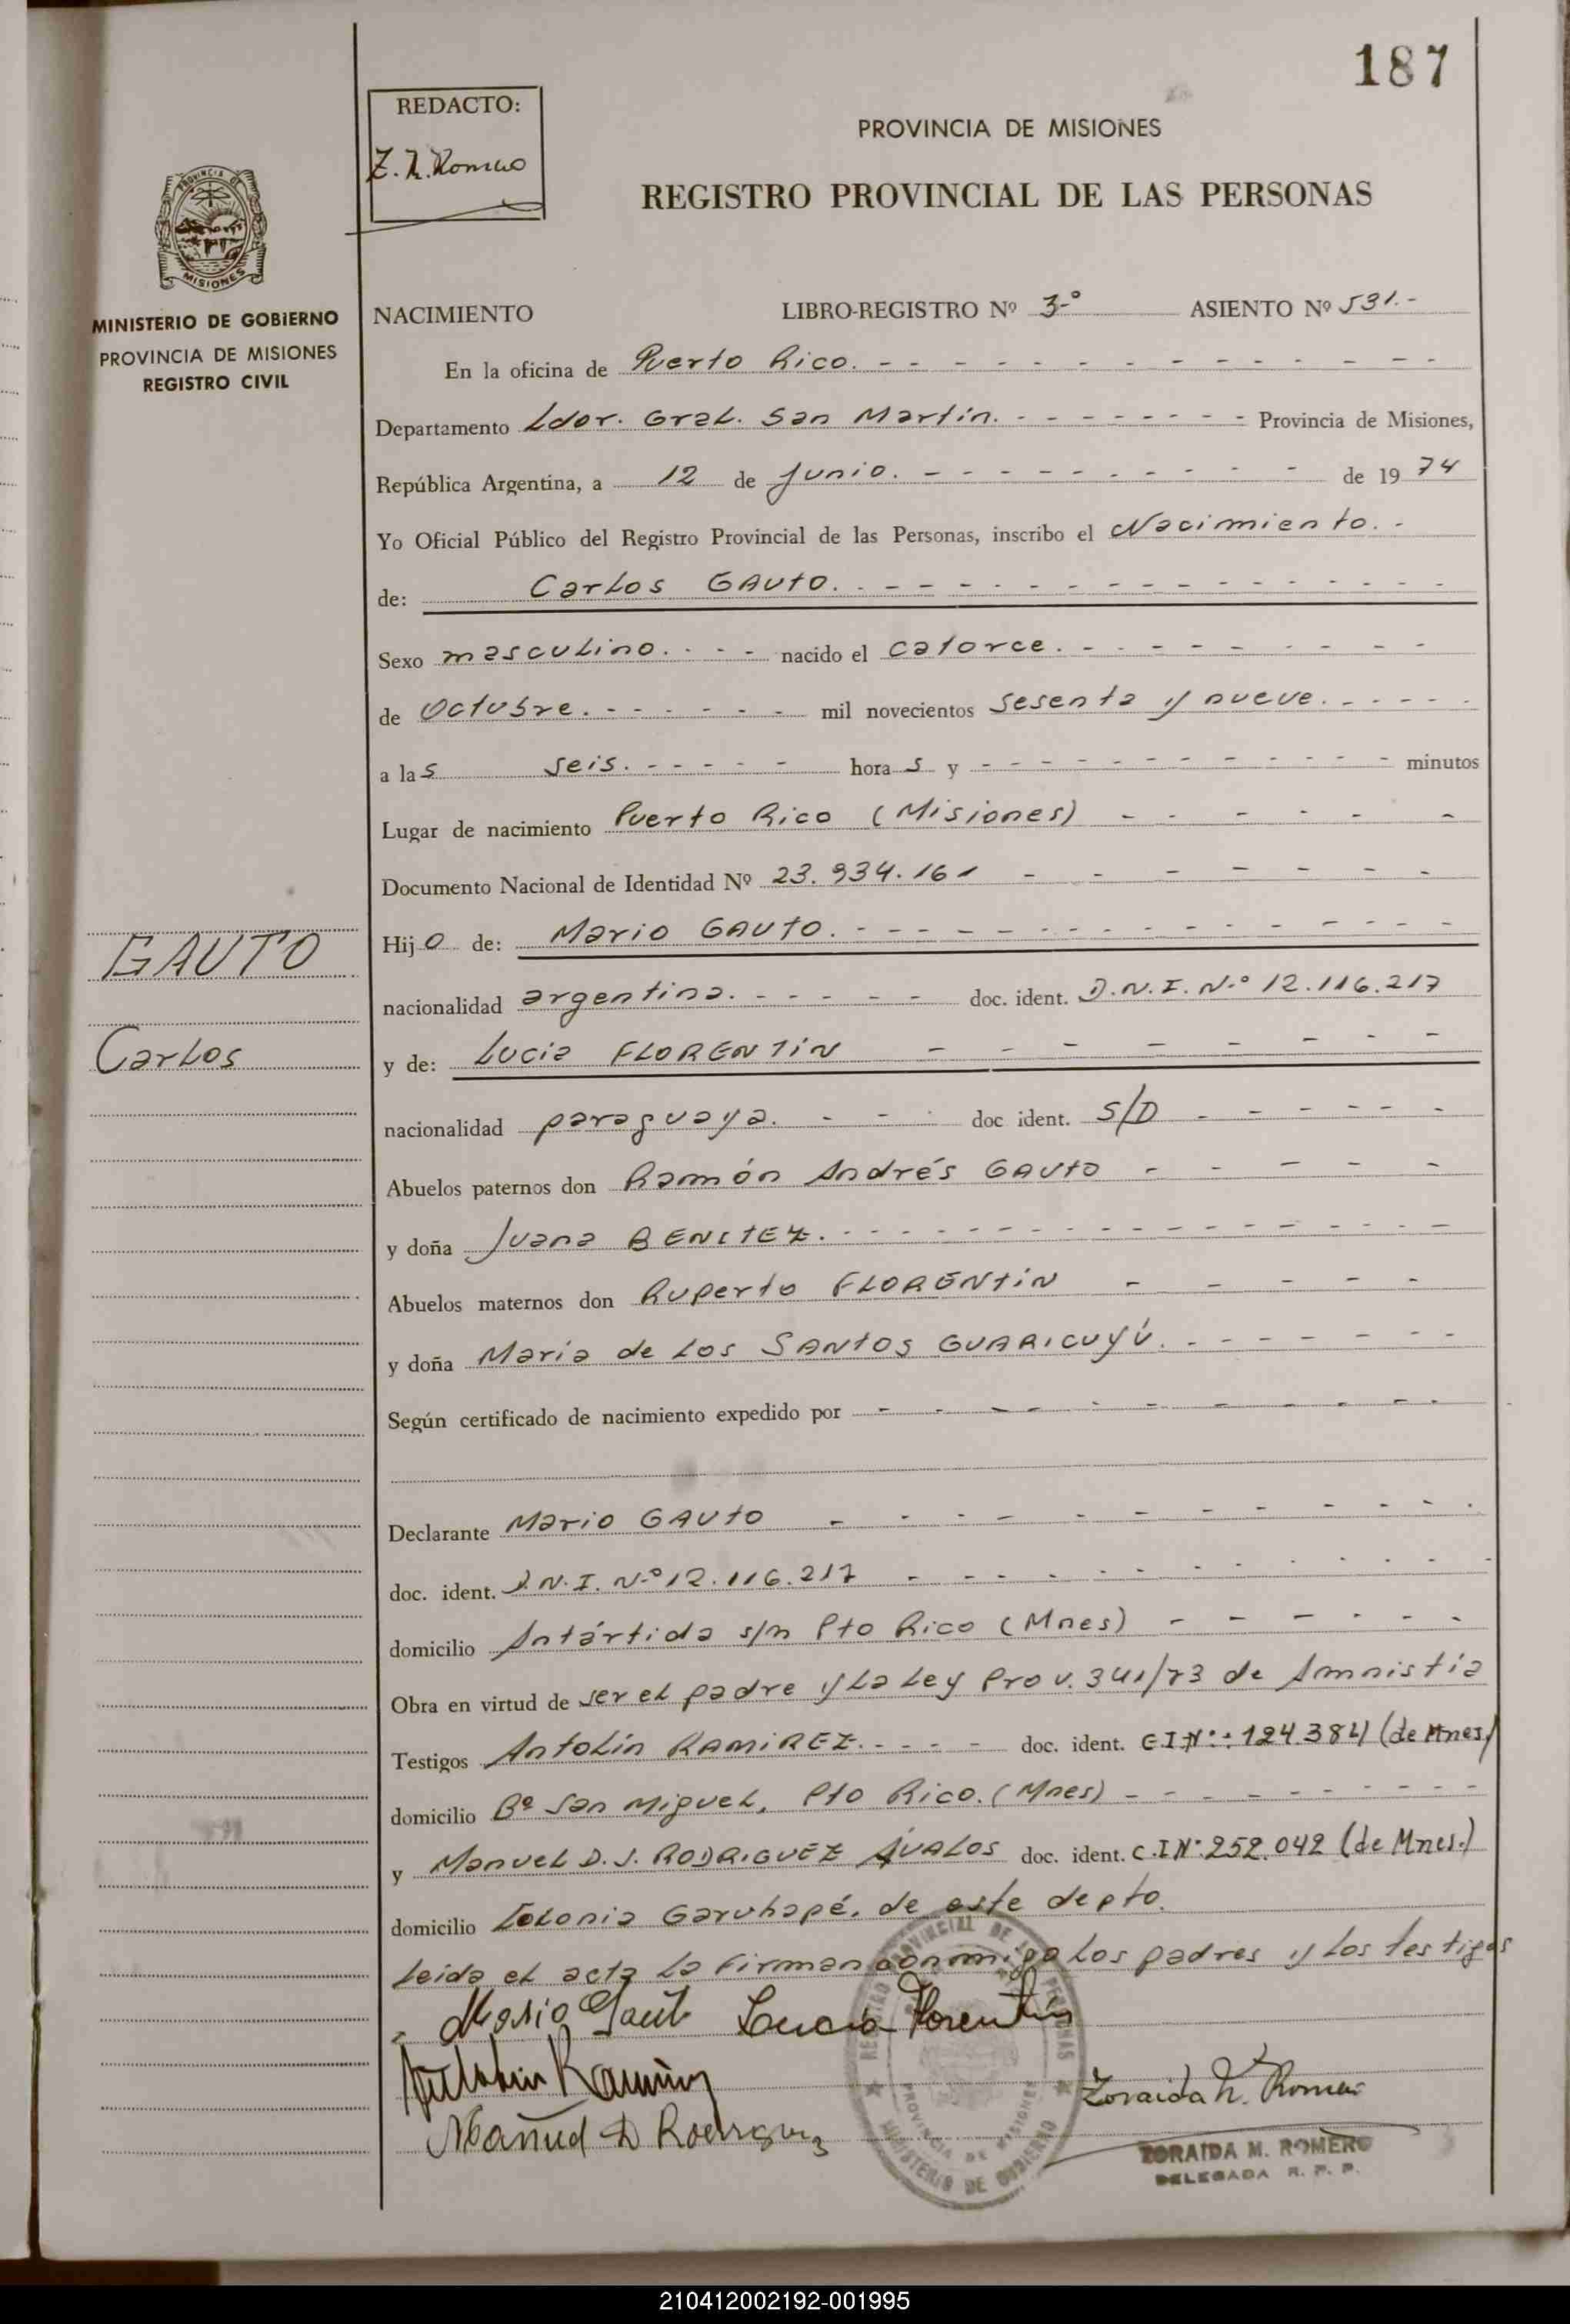 187
REDACTO:
Z. M. Romero
PROVINCIA DE MISIONES
REGISTRO PROVINCIAL DE LAS PERSONAS
PROVINCIA DE
MISIONES
MINISTERIO DE GOBIERNO
PROVINCIA DE MISIONES
REGISTRO CIVIL
NACIMIENTO LIBRO-REGISTRO Nº 3º ASIENTO Nº 531.-
En la oficina de Puerto Rico. - - - - - - - - - - - -
Departamento Ldor. Gral. San Martín. - - - - - - - - Provincia de Misiones,
República Argentina, a 12 de Junio. - - - - - - - - - - de 19 74
Yo Oficial Público del Registro Provincial de las Personas, inscribo el Nacimiento. -
de: Carlos GAUTO. - - - - - - - - - - - - - - - -
Sexo masculino. - - - nacido el catorce. - - - - - - - - -
de Octubre. - - - - - - mil novecientos sesenta y nueve. - - - - -
a las seis. - - - - - horas y - - - - - - - - - - - - minutos
Lugar de nacimiento Puerto Rico (Misiones) - - - - - -
Documento Nacional de Identidad Nº 23.934.161 - - - - - - -
Hijo de: Mario GAUTO. - - - - - - - - - - - - - -
GAUTO
nacionalidad argentina. - - - - - doc. ident. D.N.I. N.º 12.116.217
Carlos
y de: Lucia FLORENTIN - - - - - - - -
nacionalidad paraguaya. - - - doc ident. S/D - - - - - -
Abuelos paternos don Ramón Andrés GAUTO - - - - -
y doña Juana BENITEZ. - - - - - - - - - - - - - - -
Abuelos maternos don Ruperto FLORENTIN - - - - -
y doña María de los SANTOS GUARICUYÚ. - - - - - - -
Según certificado de nacimiento expedido por - - - - - - - - - -
Declarante Mario GAUTO - - - - - - - - - - -
doc. ident. D.N.I. N.º 12.116.217 - - - - - - - - - - -
domicilio Antártida s/n Pto Rico (Mnes) - - - - - -
Obra en virtud de ser el padre y la Ley Prov. 341/73 de Amnistía
Testigos Antolín RAMIREZ. - - - - doc. ident. C.I.Nº: 124.384 (de Mnes)
domicilio Bº San Miguel, Pto Rico. (Mnes) - - - - - - - - -
y Manuel D. J. RODRIGUEZ ÁVALOS doc. ident. C.I.Nº 252.042 (de Mnes.)
domicilio Colonia Garuhapé, de este depto.
Leída el acta la firman conmigo los padres y los testigos
Mario Gauto Lucia Florentín
Antolin Ramirez
Zoraida M. Romero
Manuel D Rodriguez
REGISTRO PROVINCIAL DE LAS PERSONAS
PROVINCIA DE MISIONES
MINISTERIO DE GOBIERNO
ZORAIDA M. ROMERO
DELEGADA R. P. P.
210412002192-001995